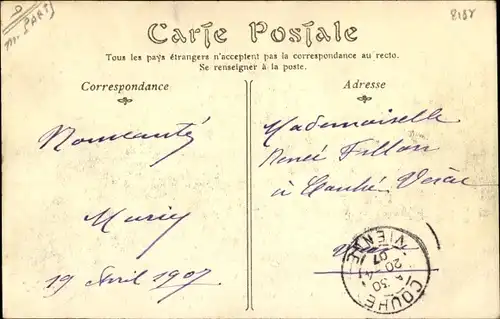 8137
Carte Postale
Tous les pays étrangers n'acceptent pas la correspondance au recto.
Se renseigner à la poste.
Correspondance
Adresse
Mademoiselle
Renée Fillon
à Couhé Vérac
Vienne
19 Avril 1907
COUHÉ
VIENNE
30
20-4
07